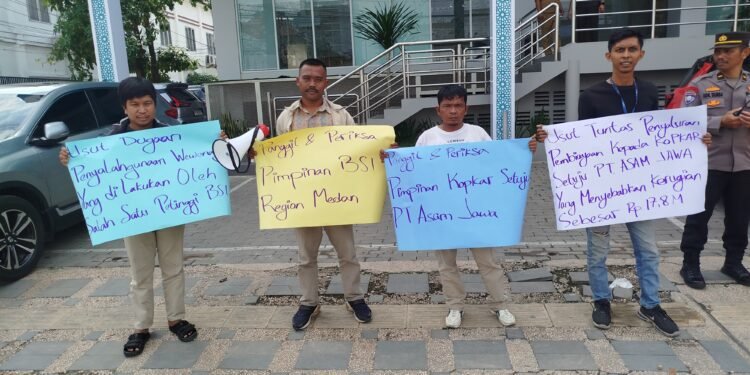 Usut Dugaan
Penyalahgunaan Wewenang
Yang di Lakukan Oleh
Salah Satu Petinggi BSI
Panggil & Periksa
Pimpinan BSI
Regian Medan
Panggil & Periksa
Pimpinan Kopkar Setuju
PT Asam Jawa
Usut Tuntas Penyaluran
Pembiayaan Kepada KOPKAR
Setuju PT ASAM JAWA
Yang Menyebabkan Kerugian
Sebesar Rp 17.8 M